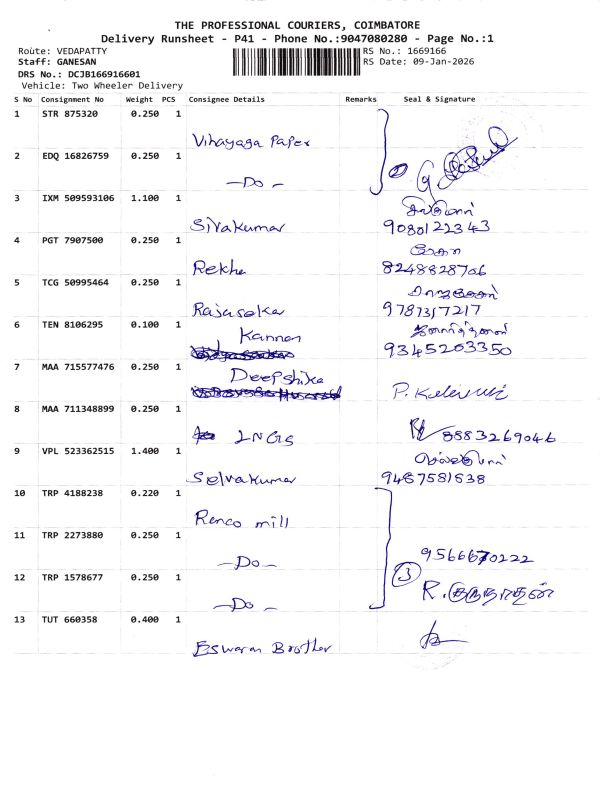 THE PROFESSIONAL COURIERS, COIMBATORE
Delivery Runsheet - P41 - Phone No.:9047080280 - Page No.:1
Route: VEDAPATTY
RS No.: 1669166
Staff: GANESAN
RS Date: 09-Jan-2026
DRS No.: DCJB166916601
Vehicle: Two Wheeler Delivery
S No Consignment No Weight PCS Consignee Details Remarks Seal & Signature
1 STR 875320 0.250 1
Vihayaga Paper
2 EDQ 16826759 0.250 1
-Do-
2
3 IXM 509593106 1.100 1
Sivakumar 9080122343
4 PGT 7907500 0.250 1
ரேகா
Rekha 8248828706
5 TCG 50995464 0.250 1
Rajaseka 9787357217
6 TEN 8106295 0.100 1
Kannan
9345203350
7 MAA 715577476 0.250 1
Deepshika
8 MAA 711348899 0.250 1
LNGS 8883269046
9 VPL 523362515 1.400 1
Selvakumar 9487581838
10 TRP 4188238 0.220 1
Renco mill
11 TRP 2273880 0.250 1
-Do- 9566670222
12 TRP 1578677 0.250 1
3
-Do- R.
13 TUT 660358 0.400 1
Eswaran Brother